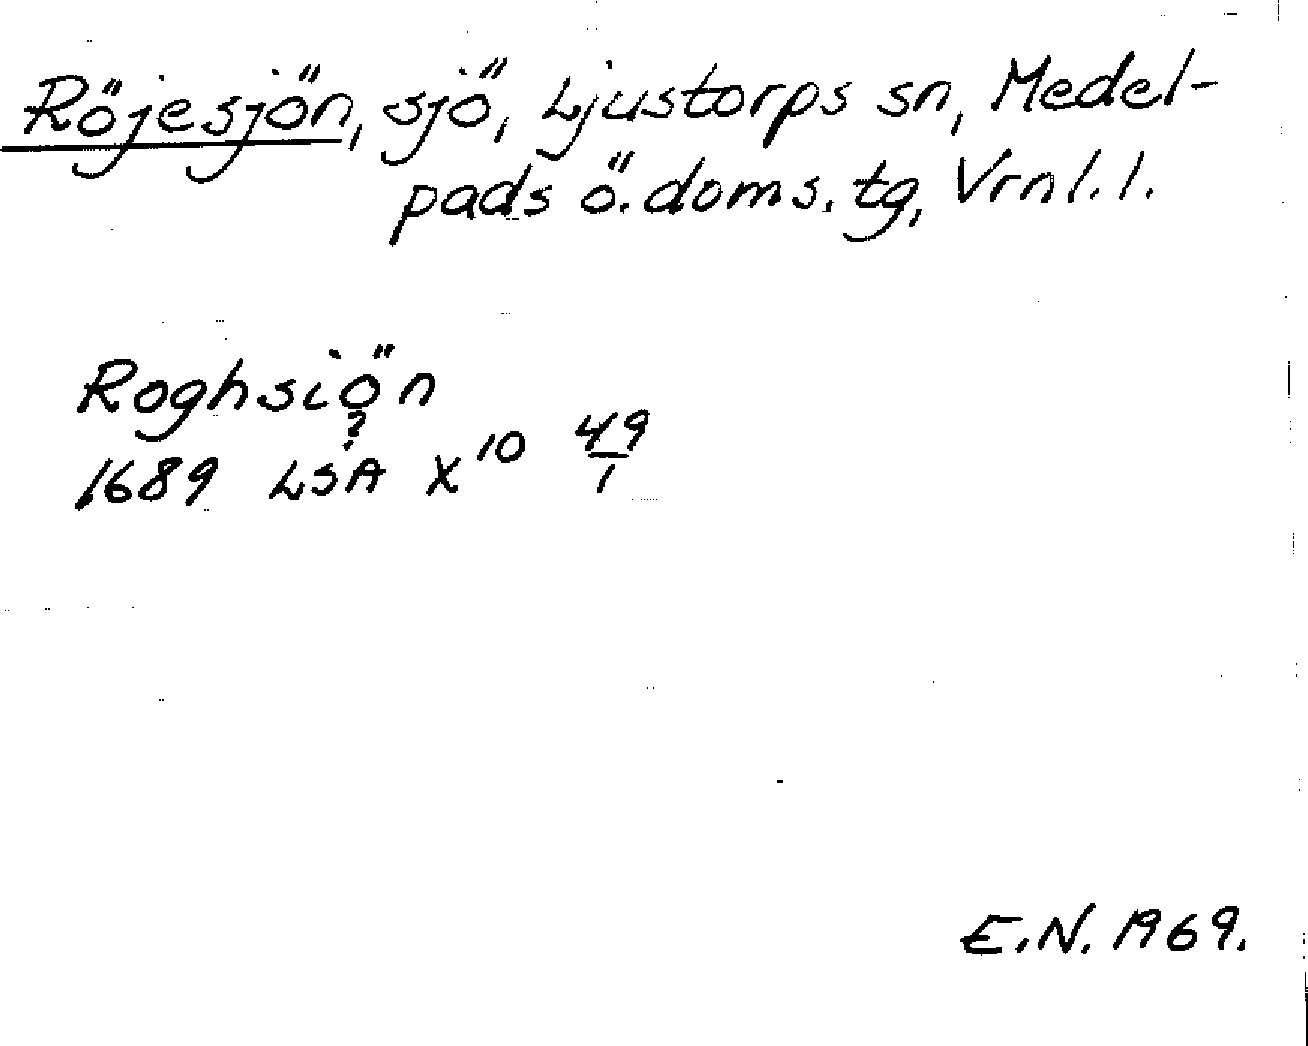 Röjesjön, sjö, Ljustorps sn, Medel-
pads ö. doms. tg, Vrnl. l.
Roghsiön
?
1689 LSA X 10 49/1
E.N. 1969.